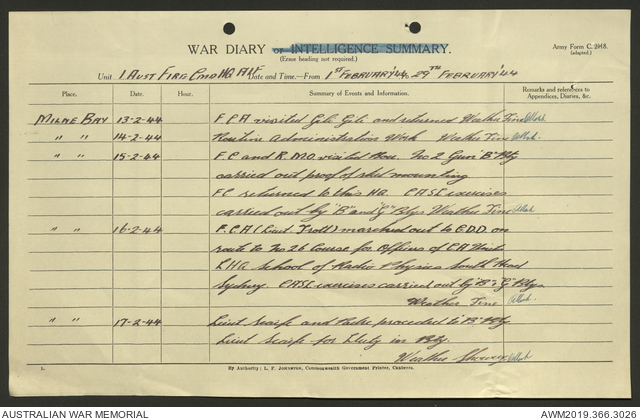 WAR DIARY or INTELLIGENCE SUMMARY.
(Erase heading not required.)
Army Form C. 2118.
(adapted.)
Unit 1 AUST FIRE CMD HQ AIF Date and Time.—From 1ST FEBRUARY '44, 29TH FEBRUARY '44
Place. Date. Hour. Summary of Events and Information. Remarks and references to Appendices, Diaries, &c.
MILNE BAY 13-2-44 F.C.A visited Gili Gili and returned Weather Fine
" " 14-2-44 Routine Administration Work Weather Fine
" " 15-2-44 F.C and R.M.O visited No 2 Gun "B" Bty
carried out proof of mounting
FC returned to this HQ CASL exercises
carried out by "B" and "G" Btys Weather Fine
" " 16-2-44 F.C.A (Lieut Trott) marched out to C.D.D. on
route to No 26 Course for Officers of CA Units
LHQ School of Radio Physics South Head
Sydney. CASL exercises carried out by "B" & "G" Btys
Weather Fine
" " 17-2-44 Lieut and Padre proceeded to "B" Bty
Lieut for Duty in Bty.
Weather Showery
5.
By Authority: L. F. JOHNSTON, Commonwealth Government Printer, Canberra.
AUSTRALIAN WAR MEMORIAL
AWM2019.366.3026